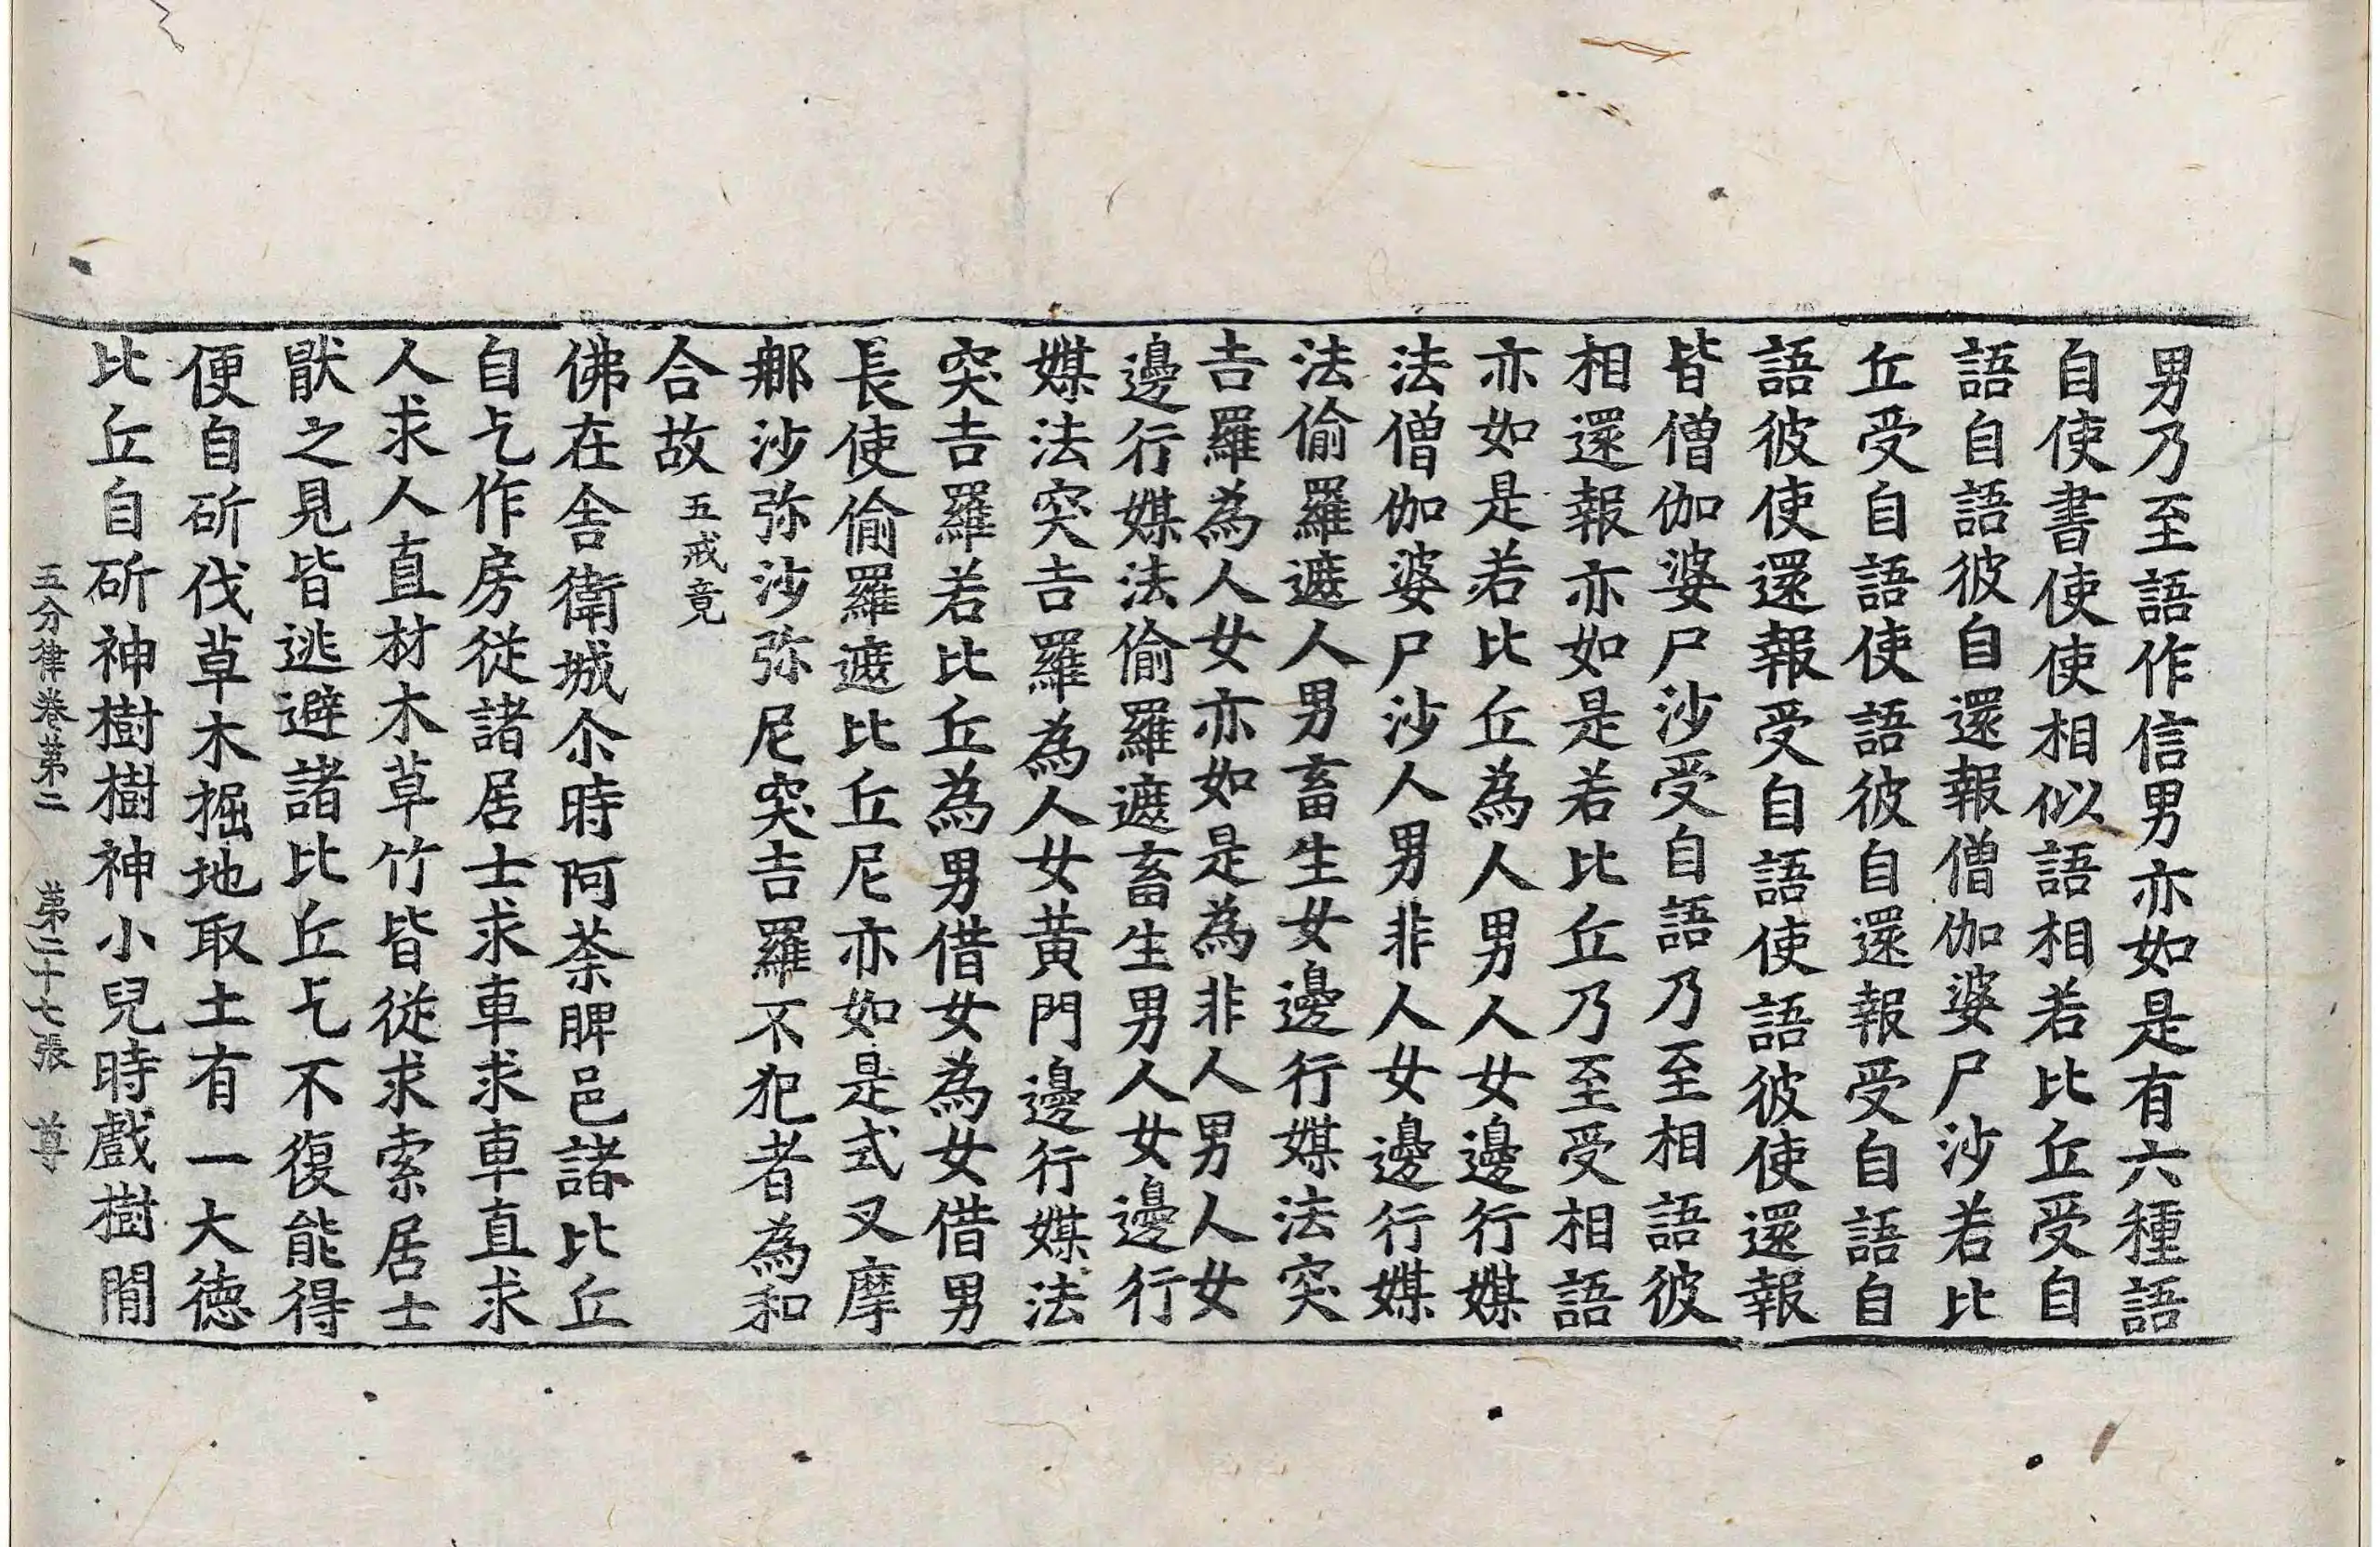 男乃至語作信男亦如是有六種語
自使書使使相似語相若比丘受自
語自語彼自還報僧伽婆尸沙若比
丘受自語使語彼自還報受自語自
語彼使還報受自語使語彼使還報
皆僧伽婆尸沙受自語乃至相語彼
相還報亦如是若比丘乃至受相語
亦如是若比丘為人男人女邊行媒
法僧伽婆尸沙人男非人女邊行媒
法偷羅遮人男畜生女邊行媒法突
吉羅為人女亦如是為非人男人女
邊行媒法偷羅遮畜生男人女邊行
媒法突吉羅為人女黃門邊行媒法
突吉羅若比丘為男借女為女借男
長使偷羅遮比丘尼亦如是式叉摩
郍沙弥沙弥尼突吉羅不犯者為和
合故五戒竟
佛在舍衛城尒時阿荼脾邑諸比丘
自乞作房從諸居士求車求車直求
人求人直材木草竹皆從求索居士
猒之見皆逃避諸比丘乞不復能得
便自斫伐草木掘地取土有一大德
比丘自斫神樹樹神小兒時戲樹閒
五分律卷第二 第二十七張 尊